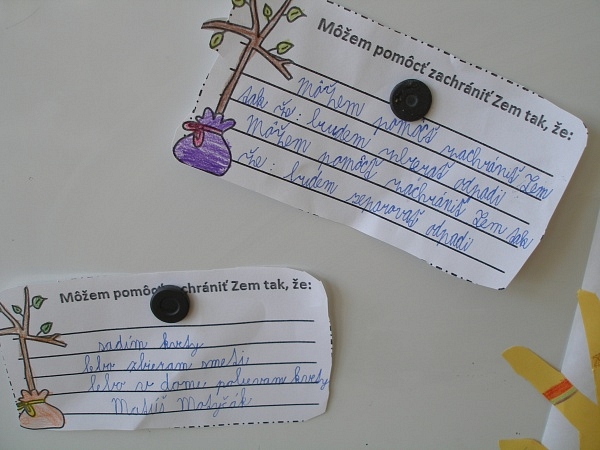 Môžem pomôcť zachrániť Zem tak, že:
Môžem pomôcť zachrániť Zem
tak že: budem zberať odpadi
Môžem pomôcť zachrániť Zem tak
že: budem separovať odpadi
Môžem pomôcť zachrániť Zem tak, že:
sadím kvety
lebo zbieram smeti
lebo v domu polievam kvety
Matúš Motyčák